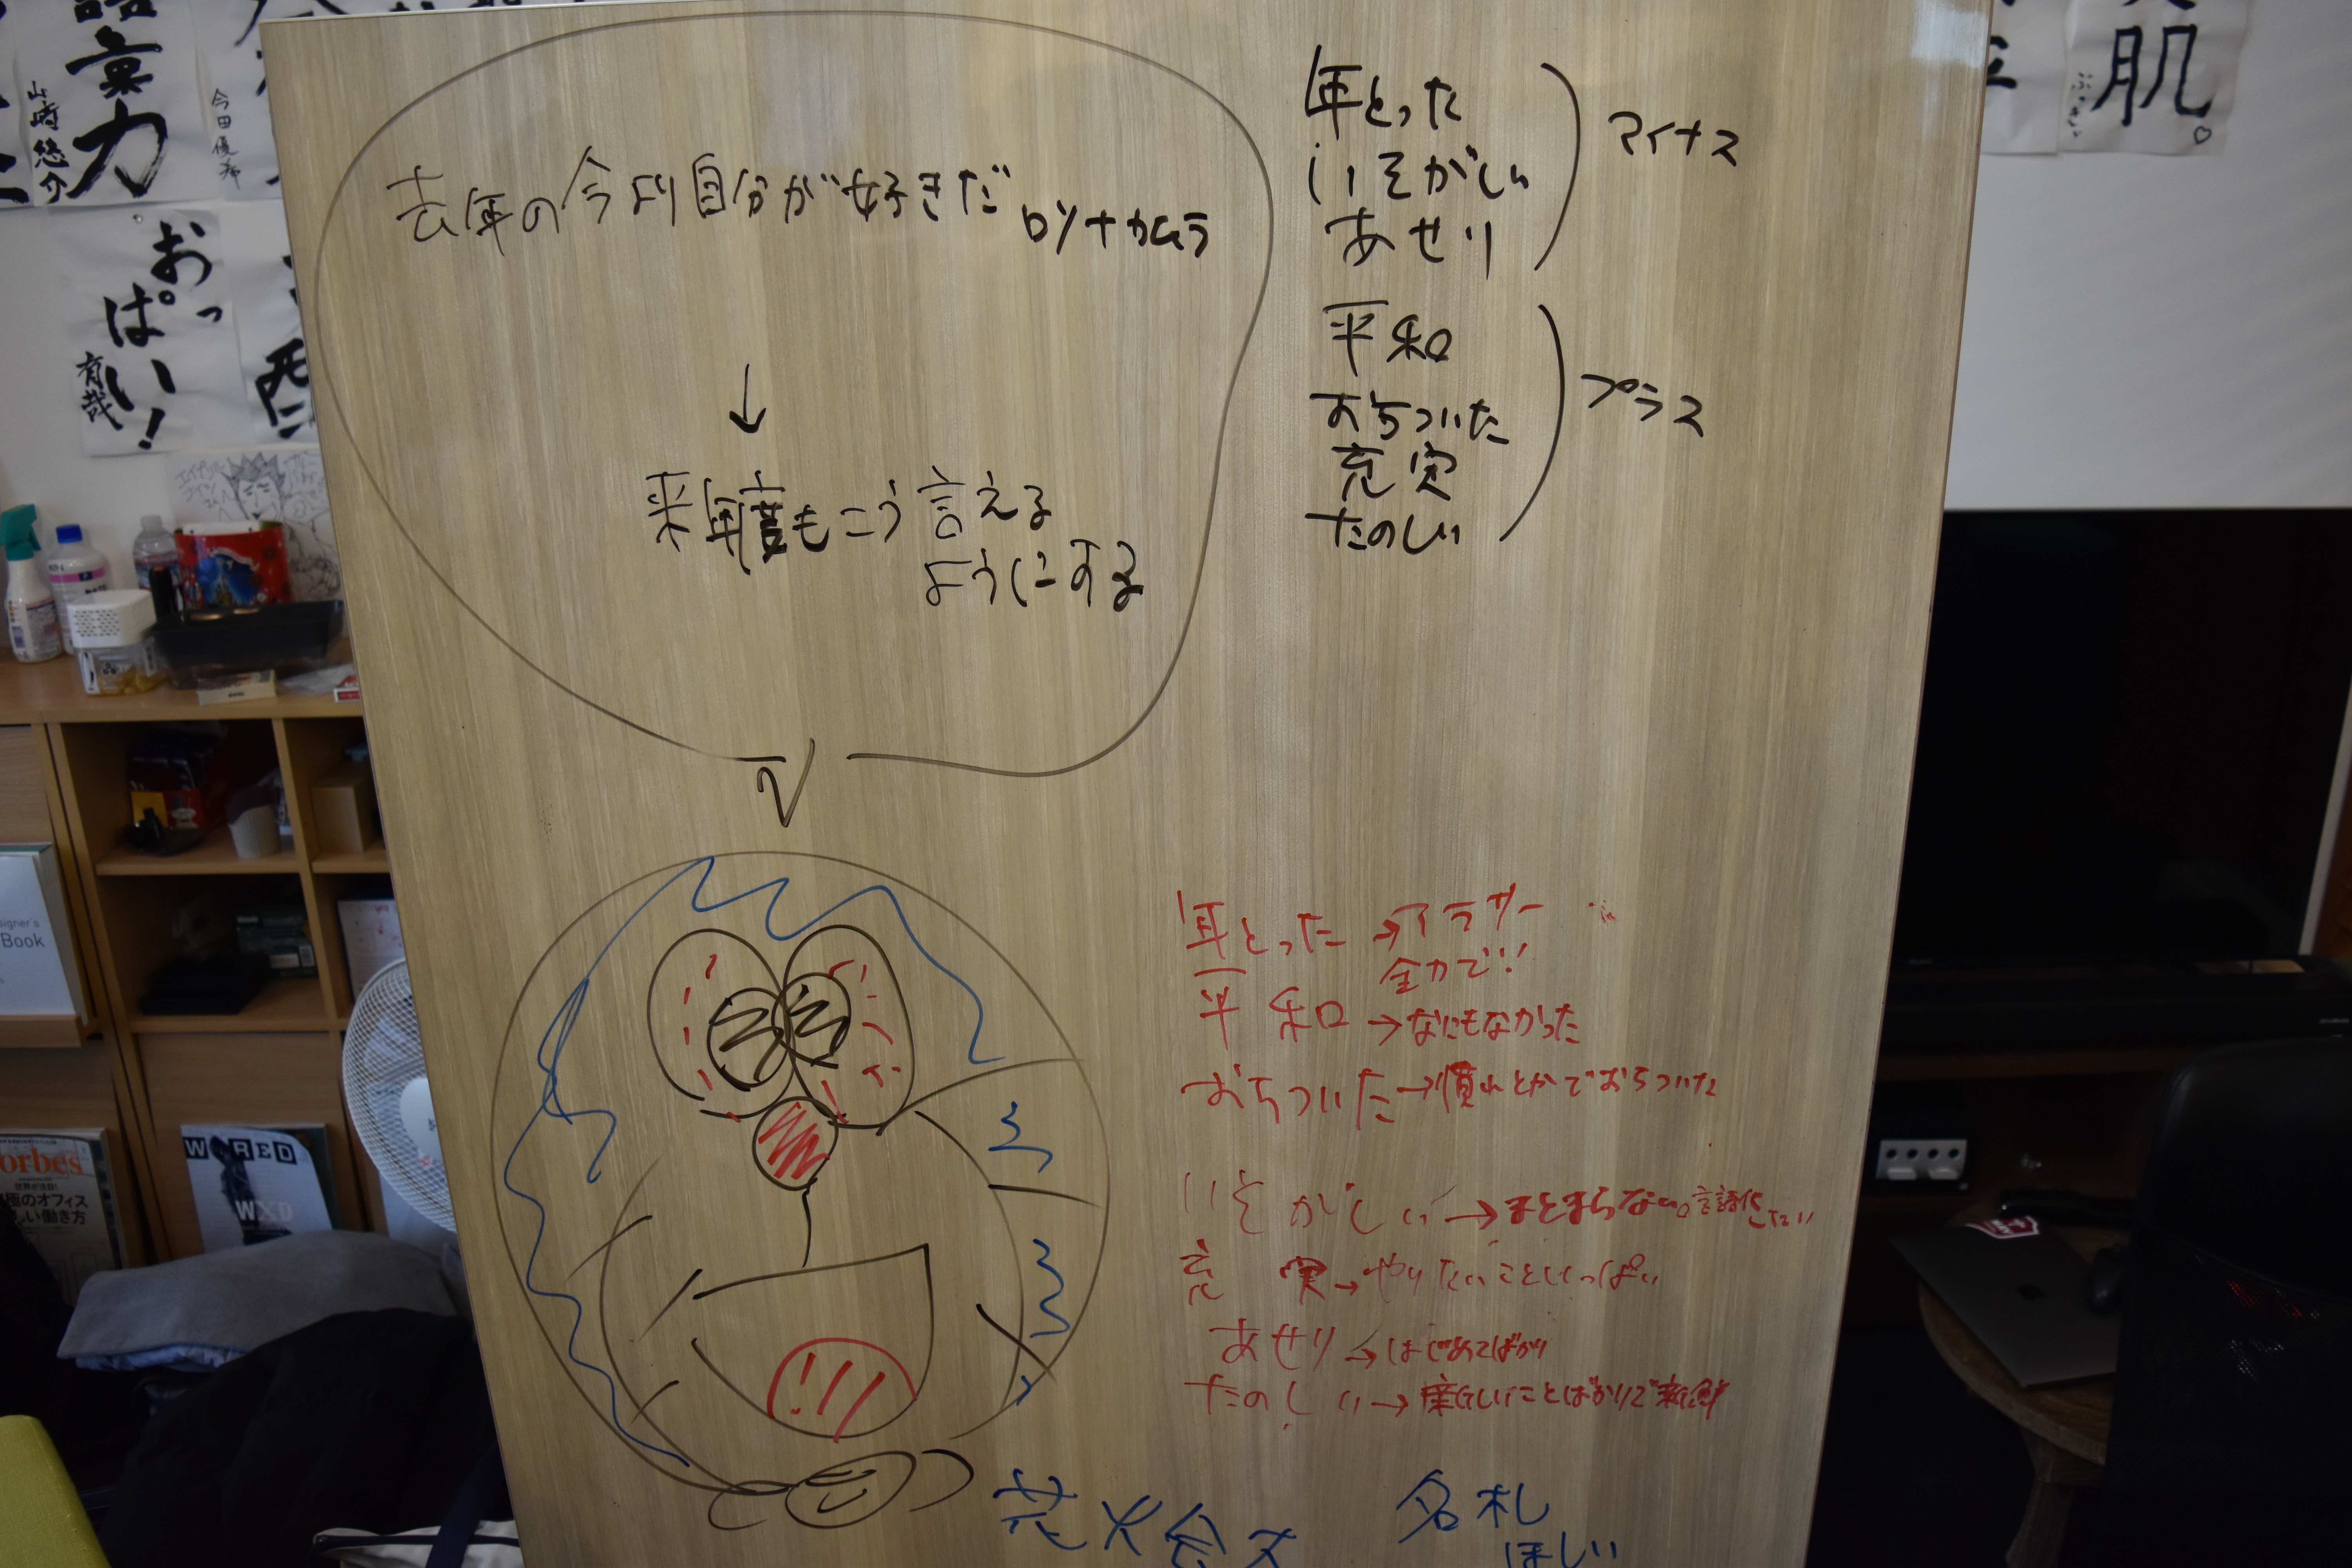 語彙力
山崎悠介
今田優希
おっぱい!
有哉
肌。
去年の今より自分が好きだ
ロソナカムラ
↓
来年度もこう言える
ようにする
年とった
いそがしい
あせり
マイナス
平和
おちついた
充実
たのしい
プラス
年とった→アラサー
全力で!!
平和→なにもなかった
おちついた→慣れとかでおちついた
いそがしい→まとまらない。言語化したい
充実→やりたいこといっぱい
あせり→はじめてばかり
たのしい→楽しいことばかりで新鮮
花火会
名札
ほしい
signer's
Book
orbes
極のオフィス
しい働き方
WIRED
WXD